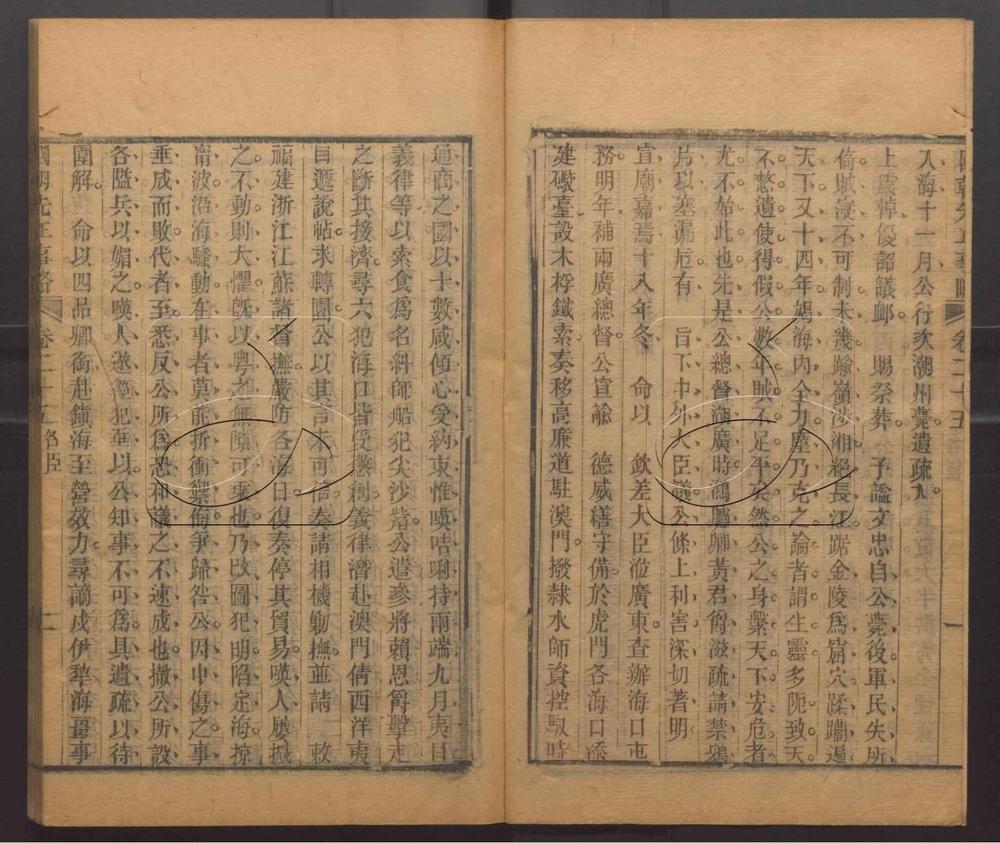 入海十一月公行次潮州薨遺疏入
上震悼優詔議卹　賜祭葬　予諡文忠自公薨後軍民失所
倚賊寖不可制未幾踰嶺涉湘絕長江踞金陵爲窟穴蹂躪遍
天下又十四年竭海內全力廑乃克之論者謂生靈多阨致天
不憗遺使得假公數年賊不足平矣然公之身繫天下安危者
尤不始此也先是公總督湖廣時鴻臚卿黃君爵滋疏請禁鴉
片以塞漏卮有　旨下中外大臣議公條上利害深切著明
宣廟嘉焉十八年冬　命以　欽差大臣涖廣東查辦海口屯
務明年補兩廣總督公宣諭　德威繕守備於虎門各海口添
建礮臺設木桴鐵索奏移高廉道駐澳門撥隸水師資控馭時
國朝先正事略　卷二十五
通商之國以十數咸傾心受約束惟㗖咭唎持兩端九月夷目
義律等以索食爲名糾師船犯尖沙嘴公遣參將賴恩爵擊走
之斷其接濟尋六犯海口皆受懲創義律潛赴澳門倩西洋夷
目遞說帖求轉圜公以其言未可信奏請相機勦撫並請　敕
福建浙江江蘇諸督撫嚴防各海口復奏停其貿易㗖人屢撼
之不動則大懼旣以粵之無隙可乘也乃改圖犯明陷定海掠
甯波沿海騷動在事者莫能折衝禦侮爭歸咎公因中傷之事
垂成而敗代者至悉反公所爲恐和議之不速成也撤公所設
各隘兵以媚之㗖人遂　犯　以公知事不可爲具遺疏以待
圍解　命以四品卿銜赴鎭海至營效力尋謫戍伊犂海畺事
國朝先正事略　卷二十五名臣